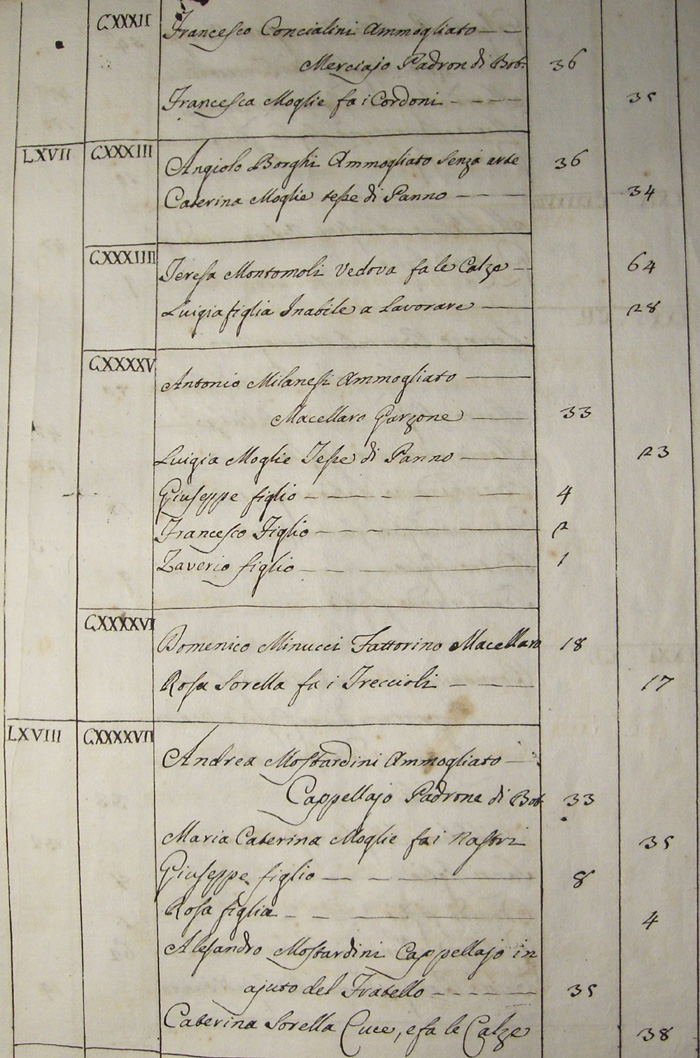 CXXXII Francesco Concialini Ammogliato
Merciajo Padron di Bot. 36
Francesca Moglie fa i Cordoni 35
LXVII CXXXIII Angiolo Borghi Ammogliato Senza arte 36
Caterina Moglie tesse di Panno 34
CXXXIIII Teresa Montomoli Vedova fa le Calze 64
Luigia figlia Inabile a Lavorare 28
CXXXXV Antonio Milanesi Ammogliato
Macellaro Garzone 33
Luigia Moglie Tesse di Panno 23
Giuseppe figlio 4
Francesco Figlio 2
Zaverio figlio 1
CXXXXVI Domenico Minucci Fattorino Macellaro 18
Rosa Sorella fa i Treccioli 17
LXVIII CXXXXVII Andrea Mostardini Ammogliato
Cappellajo Padrone di Bot. 33
Maria Caterina Moglie fa i Nastri 35
Giuseppe figlio 8
Rosa figlia 4
Alesandro Mostardini Cappellajo in
ajuto del Fratello 35
Caterina Sorella Cuce, e fa le Calze 38